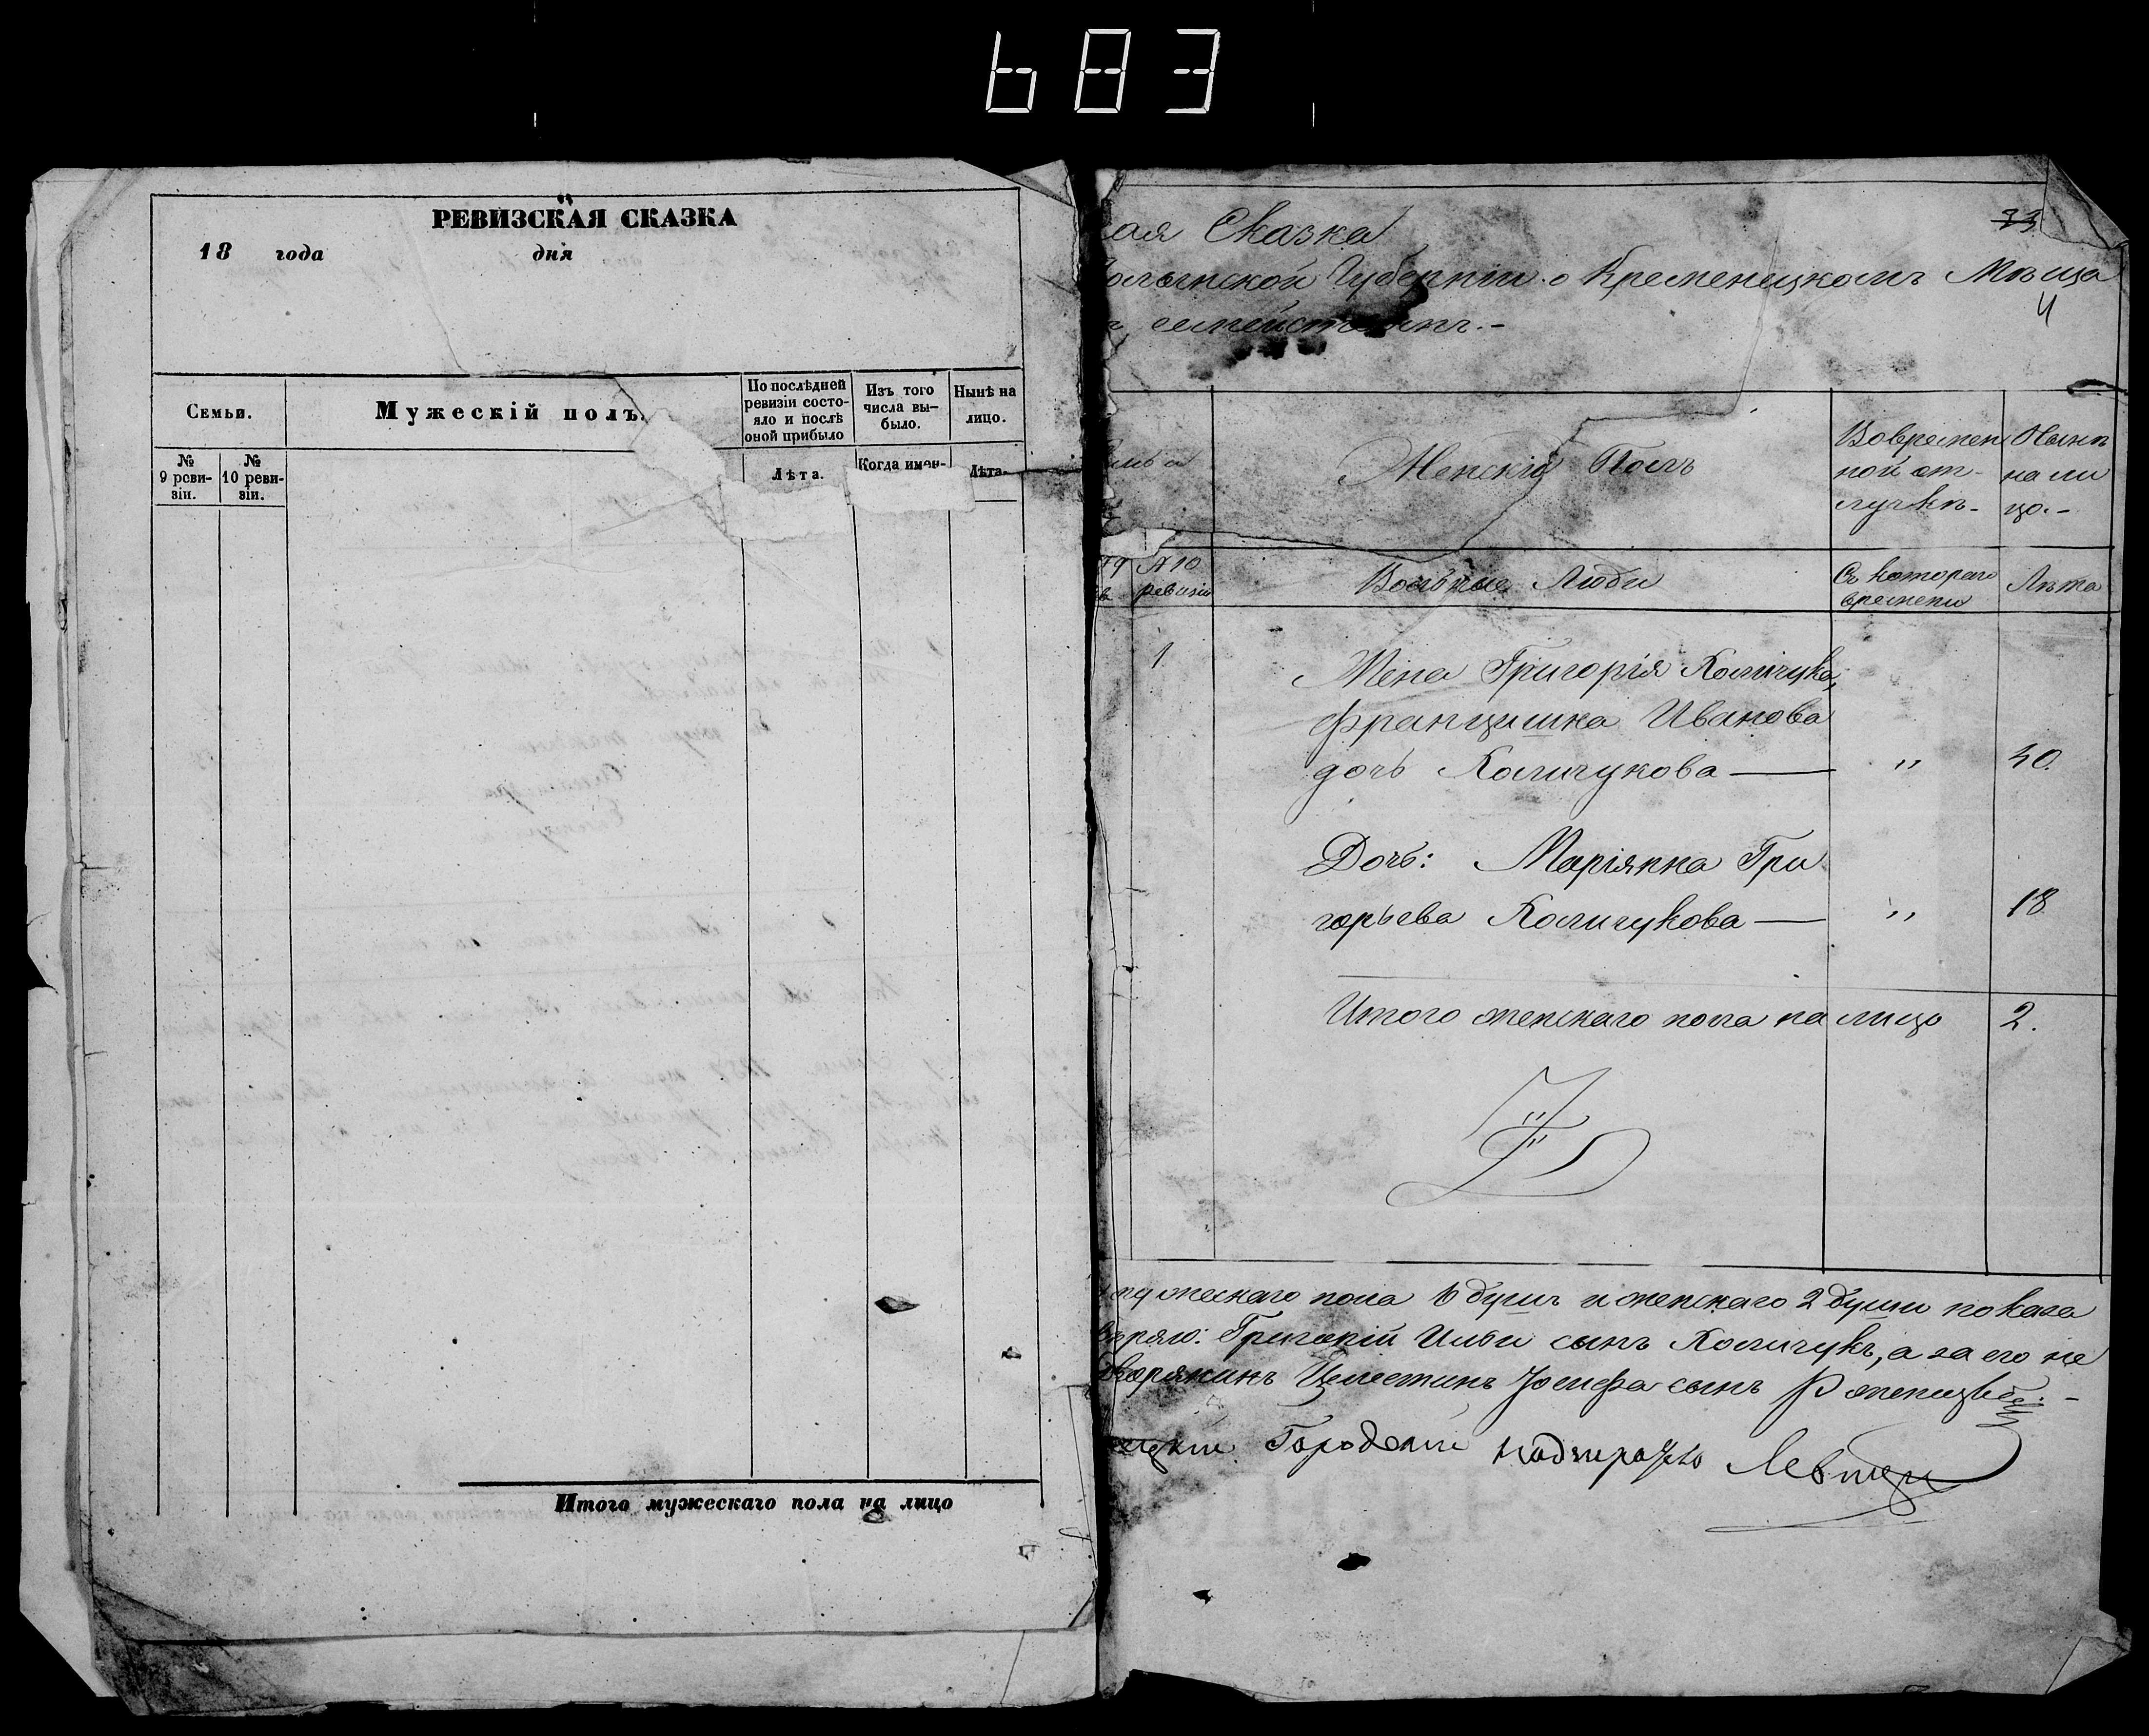 683
РЕВИЗСКАЯ СКАЗКА
18 года дня
Семьи.
Мужескій полъ.
По послѣдней
ревизіи состо-
яло и послѣ
оной прибыло
Изъ того
числа вы-
было.
Нынѣ на
лицо.
№
9 реви-
зіи.
№
10 реви-
зіи.
Лѣта.
Когда имен-
Лѣта.
Итого мужескаго пола на лицо
33
ая Сказка
олынской Губерніи о Кременецкомъ Мѣща
4
семействомъ.-
Женскій Полъ
Вовремен
ной от-
лучкѣ-
Нынѣ
на ли
цо.-
№ 10
ревизіи
Вольные Люди
Съ котораго
времени
Лѣта
1
Жена Григорія Колічука,
Францишка Иванова
дочь Количукова — " 40.
Дочь: Маріянна Гри
горьева Количукова — " 18
Итого женскаго пола на лицо 2.
мужескаго пола 6 душъ и женскаго 2 души показа
Григорій Ильи сынъ Количукъ, а за его не
дворянинъ Целестинъ Іосифа сынъ
Городовый надзиратель